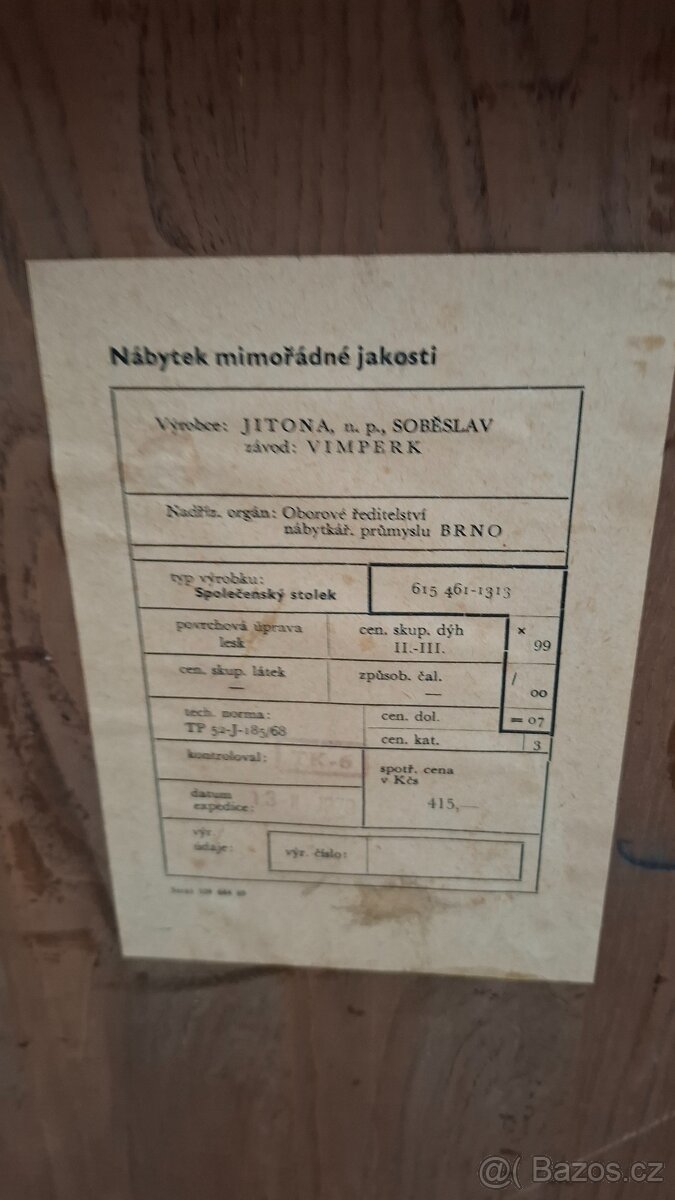 Nábytek mimořádné jakosti
Výrobce: JITONA, n. p., SOBĚSLAV
závod: VIMPERK
Nadříz. orgán: Oborové ředitelství
nábytkář. průmyslu BRNO
typ výrobku:
Společenský stolek
615 461-1313
povrchová úprava
lesk
cen. skup. dýh
II.-III.
×
99
cen. skup. látek
—
způsob. čal.
—
/
00
tech. norma:
TP 52-J-185/68
cen. dol.
= 07
cen. kat.
3
kontroloval: TK-6
spotř. cena
v Kčs
415,—
datum
expedice: 13
výr.
údaje:
výr. číslo:
@( Bazos.cz